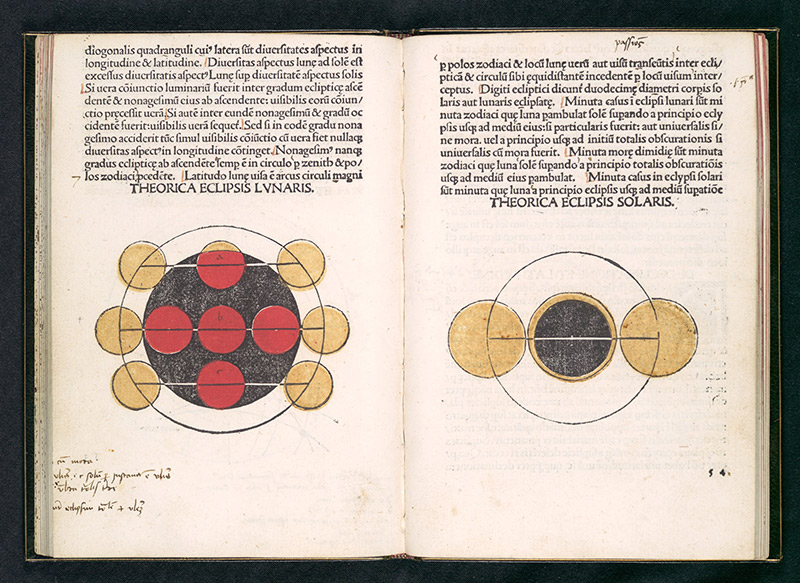 diogonalis quadranguli cuiꝰ latera sūt diuersitates aspectus in
longitudine & latitudine. Diuersitas aspectus lunę ad solē est
excessus diuersitatis aspectꝰ Lunę sup diuersitatē aspectus solis
Si uera cōiunctio luminariū fuerit inter gradum eclipticę ascē
dentē & nonagesimū eius ab ascendente: uisibilis eorū cōiun/
ctio pręcessit uerā Si autē inter eundē nonagesimū & gradū oc
cidentē fuerit: uisibilis uerā sequeť. Sed si in eodē gradu nona
gesimo acciderit tūc simul uisibilis cōiūctio cū uera fiet nullaqꝫ
diuersitas aspectꝰ in longitudine cōtinget. Nonagesimꝰ nanqꝫ
gradus eclipticę ab ascēdēte semp ē in circulo p zenith & po/
los zodiaci pcedēte. Latitudo lunę uisa ē arcus circuli magni
THEORICA ECLIPSIS LVNARIS.
cū mora
passiōs
p polos zodiaci & locū lunę uerū aut uisū transeūtis inter ecli/
pticā & circulū sibi equidistantē incedentē p locū uisum inter/
ceptus. Digiti ecliptici dicunť duodecimę diametri corpis so
laris aut lunaris eclipsatę. Minuta casus ī eclipsi lunari sūt mi
nuta zodiaci quę luna pambulat solē supando a principio ecly
psis usqꝫ ad mediū eius: si particularis fuerit: aut uniuersalis si/
ne mora. uel a principio usqꝫ ad initiū totalis obscurationis si
uniuersalis cū mora fuerit. Minuta morę dimidię sūt minuta
zodiaci quę luna solē supando a principio totalis obscuratiōis
usqꝫ ad mediū eius pambulat. Minuta casus in eclypsi solari
sūt minuta quę luna a principio eclipsis usqꝫ ad mediū supatiōe
THEORICA ECLIPSIS SOLARIS.
54.